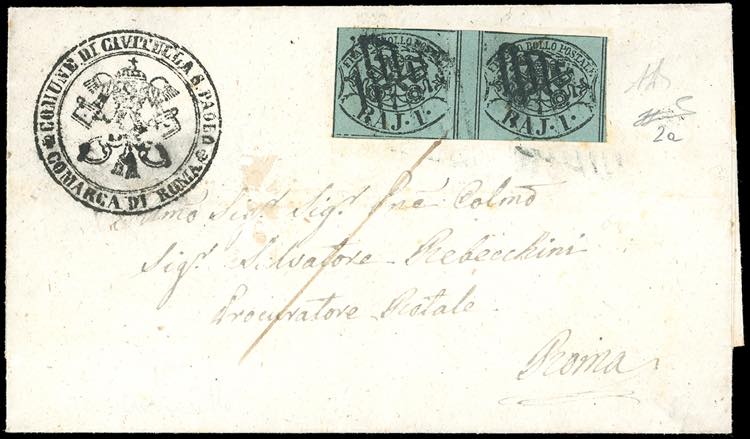 COMUNE DI CIVITELLA S. PAOLO
COMARCA DI ROMA
FRANCO BOLLO POSTALE
BAJ. 1.
FRANCO BOLLO POSTALE
BAJ. 1.
2a
Sigr. Sigr. Pne Colmo
Sigr. Salvatore Rebecchini
Procuratore Rotale
Roma